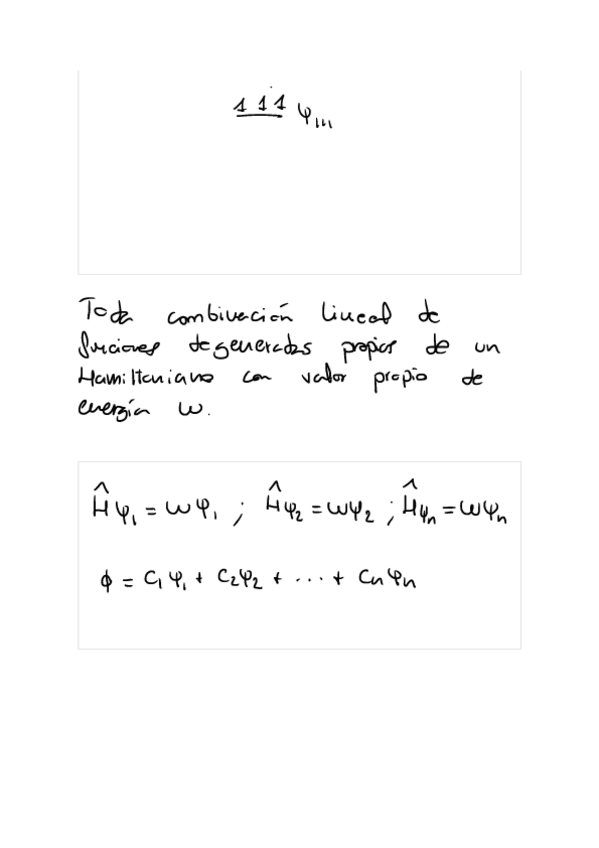 1 1 1 φ₁₁₁
Toda combinación lineal de
funciones degeneradas propias de un
Hamiltoniano con valor propio de
energía w.
Ĥφ₁ = wφ₁ ; Ĥφ₂ = wφ₂ ; Ĥφₙ = wφₙ
ϕ = C₁φ₁ + C₂φ₂ + ... + Cₙφₙ